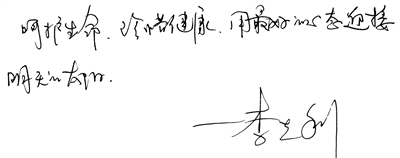 呵护生命、珍惜健康、用最好的心态迎接
明天的太阳.
——李立利